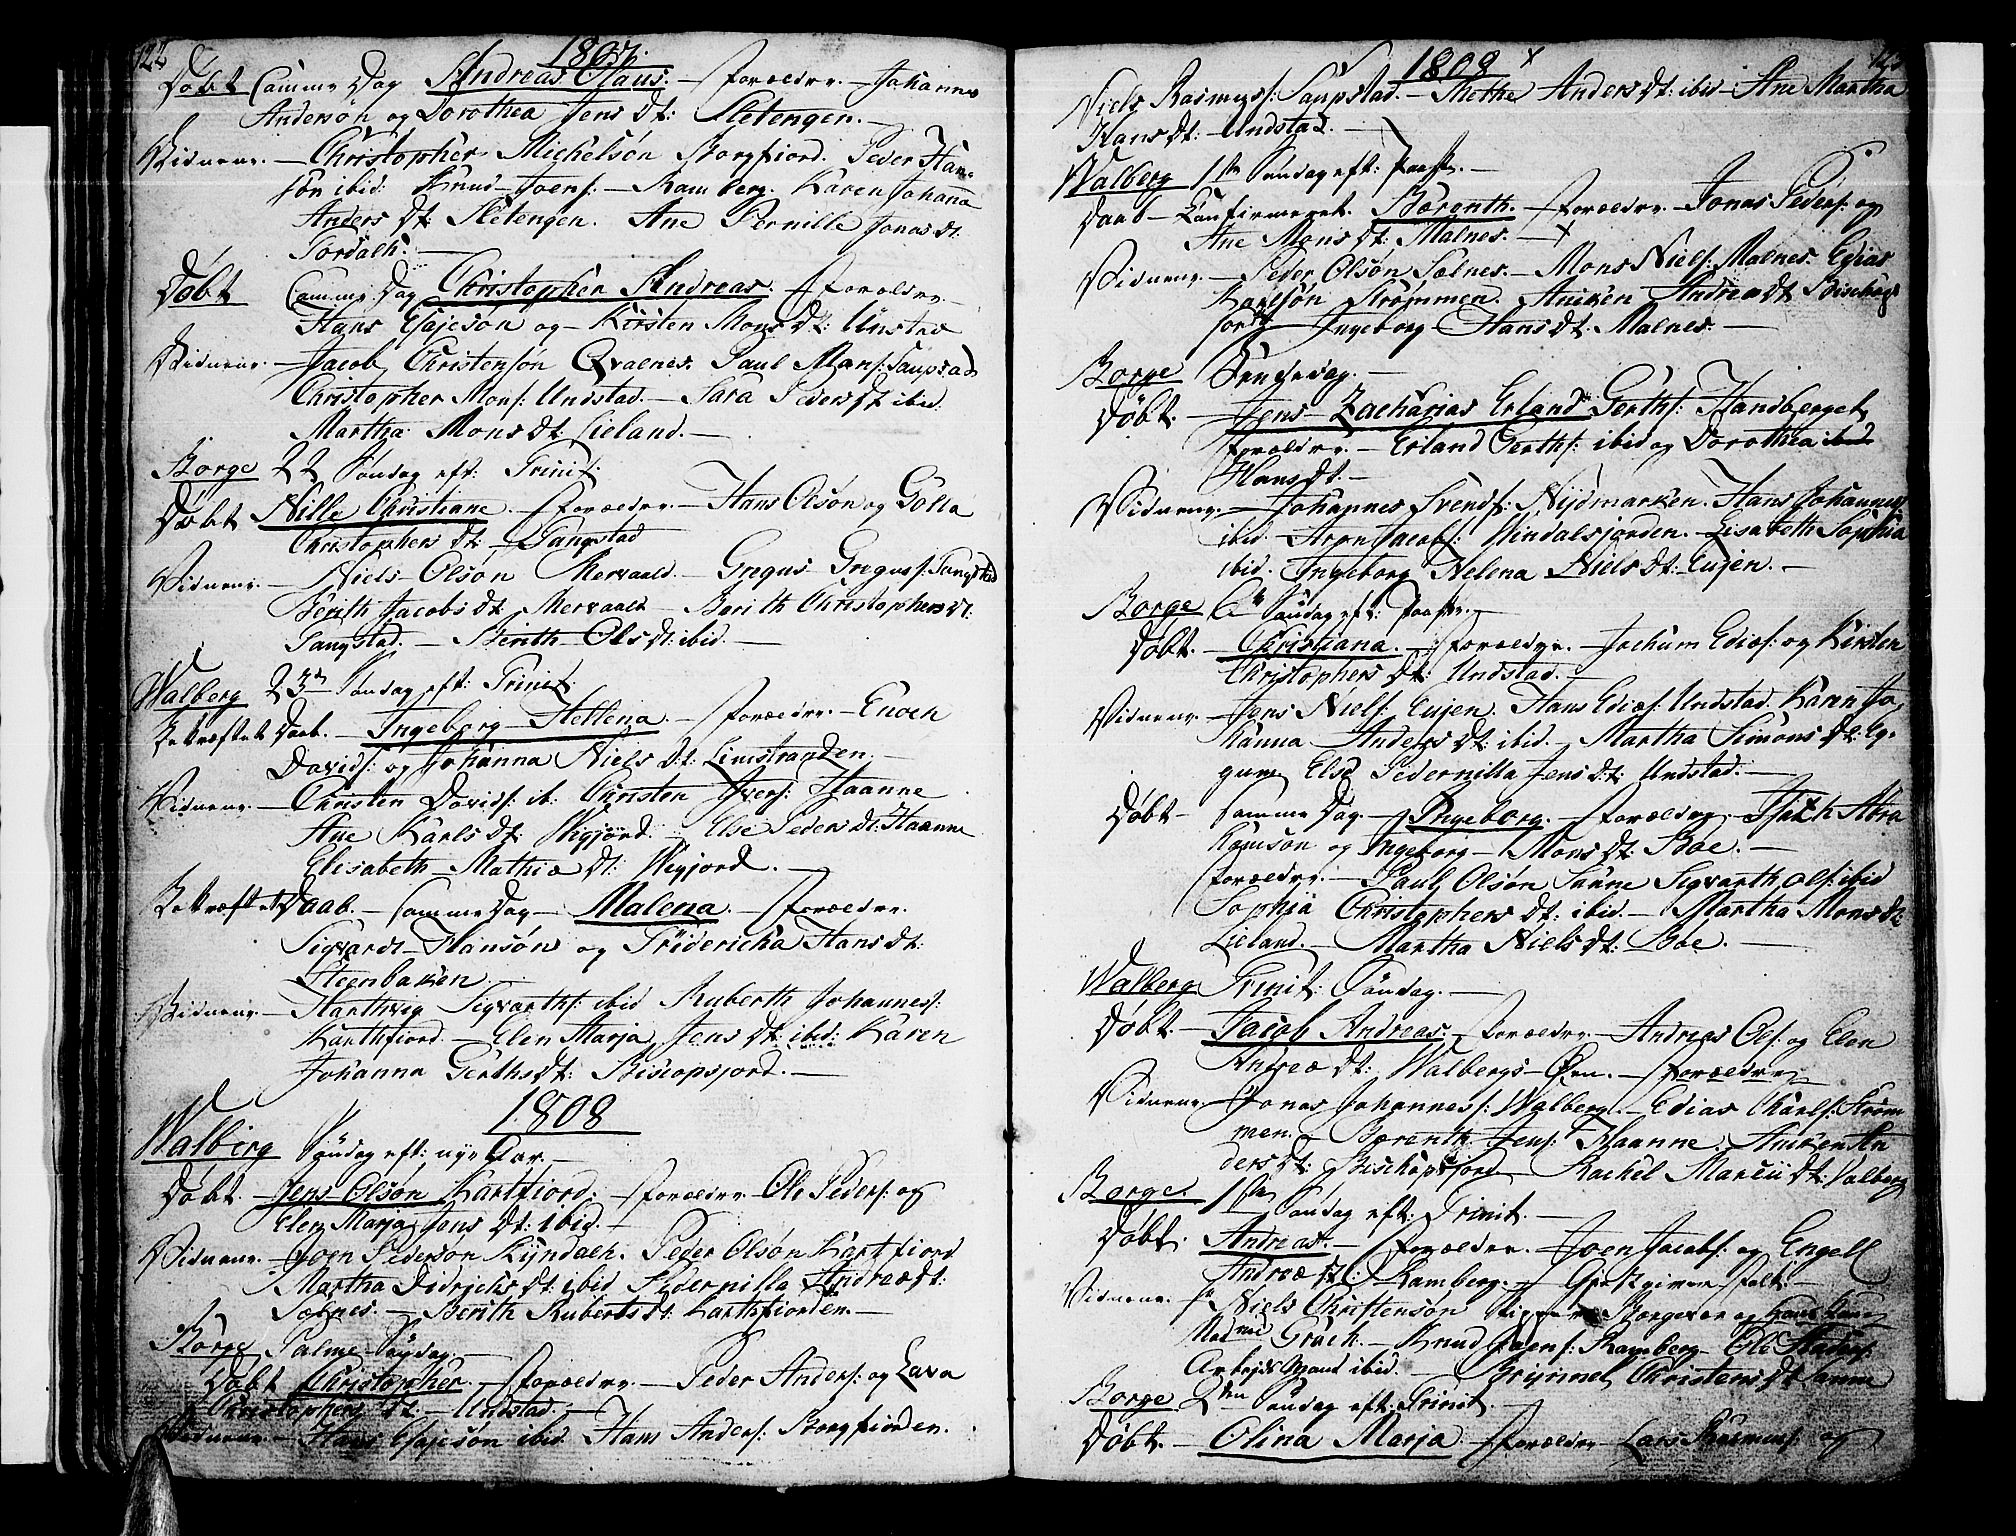 122
1807.
Døbt Samme Dag Andreas Claus. – Forældre – Johannes
Andersøn og Dorothea Jens Dt: Sletengen. –
Vidnene. – Christopher Michelsøn Borgfiord. Peder Han-
søn ibid: Knud Joens: – Ramberg. Karen Johanna
Anders Dt: Sletengen. Ane Pernille Jonas Dt:
Døbt Samme Dag Christopher Andreas. Forældre. –
Hans Esajesøn og – Kirsten Mons Dt: Unstad
Vidnene. – Jacob Christensøn Qvalnes. Paul Mans: Saupstad
Christopher Mons: Undstad. – Sara Peders Dt ibid.
Martha Mons Dt: Lieland. –
Borge 22 Søndag eft: Trinit:
Døbt Nille Christiane. – Forældre. – Hans Olsøn og Golla
Christophers Dt: – Tangstad
Vidnene. – Niels Olsøn Mervaald. – Gregus Gregus: Tangstad
Berith Jacobs Dt: Mervaald – Berith Christophers Dt:
Tangstad. – Berith Ols Dt: ibid. –
Walberg 23de Søndag eft: Trinit:
Bekræftet Daab. – Ingeborg Hellena. – Forældre. – Enoch
Davids: og Johanna Niels Dt: Limstranden –
Vidnene. – Christen Davids: ib: Christen Ivers: Haanne
Ane Karls Dt: – Else Peders Dt: Haanne
Elisabeth Mathiæ Dt:
Bekræftet Daab. – Samme Dag – Malena. – Forældre.
Sigvardt Hansøn og Fridericka Hans Dt:
Steenbaken –
Vidnene. – Harthvig Sigvarths: ibid Ruberth Johannes:
Karthfiord. – Elen Marja Jens Dt: ibid: Karen
Johanna Gerths Dt: Biscopsjord. –
1808
Walberg Søndag eft: nye Aar. –
Døbt. – Jens Olsøn Kartfiord. – Forældre Ole Peders: og
Elen Marja Jens Dt: ibid. –
Vidnene. – Joen Pedersøn Peder Olsøn Kartfiord
Martha Didrichs Dt: ibid Pedernilla Andreæ Dt:
Sølnes. – Berith Ruberts Dt: Karthfiorden. –
Borge Palme Søndag. –
Døbt Christopher. – Forældre. – Peder Anders: og Lava
Christophers Dt: – Undstad. –
Vidnene. – Hans Esajesøn ibid. Hans Anders: Borgfiorden.
1808
Niels Rasmus: Saupstad. – Methe Anders Dt: ibid – Ane Martha
Hans Dt: Undstad. –
Walberg 1ste Søndag eft: Paaske. –
Daab – Confirmeret. Bærenth. – Forældre. – Jonas Peders: og
Ane Mons Dt: Malnes. –
Vidnene – Peder Olsøn Sølnes. – Mons Niels: Malnes. Edias
Karlsøn Strømmen. Anicken Andreæ Dt Bischops
Ingeborg Hans Dt: Malnes. –
Borge
Døbt. – Jens Zacharias Erland Gerths: Handberget
Forældre. – Erland Gerths: ibid og Dorothea
Hans Dt: –
Vidnene. – Johannes Svends: Nijdmarken. Hans Johannes:
ibid. Aron Jacobs: Lisabeth Sophia
ibid. Ingeborg Helena Niels Dt: Eujen. –
Borge 6te Søndag eft: Paaske. –
Døbt. – Christiana. – Forældre. – Jochum Ediæs: og Kirsten
Christophers Dt: Undstad. –
Vidnene – Jens Niels: Eujen. Hans Ediæs: Undstad. Karen Jo
hanna Anders Dt: ibid. – Martha Simons Dt: Eg-
gum Else Pedernilla Jens Dt: Undstad: –
Døbt – Samme Dag. – Ingeborg. – Forældre. – Abra
hamsøn og Ingeborg – Mons Dt: Boe. –
Forældre. – Paul Olsøn Sanne Sigvarth Ols: ibid
Sophia Christophers Dt: ibid. – Martha Mons Dt:
Lieland. – Martha Niels Dt: Boe. –
Walberg Trinit: Søndag. –
Døbt. – Jacob Andreas. – Forældre. – Andreas Ols: og Elen
Andreæ Dt: Walbergs-Øen. – Forældre
Vidnene. Jonas Johannes: Walberg. – Edias Charls: Strøm
men. – Bærenth Jens: Haanne. Anicken An
ders Dt: Bischopsjord – Rachel Marcii Dt: Valberg
Borge. 1ste Søndag eft: Trinit. –
Døbt. Andreas. – Forældre. – Joen Jacobs: og Engell
Andreæ Dt: Ramberg. – Giestgiver
Vidnene. Hr Niels Christensøn
Græck. – Knud Joens: Ramberg
Arbejds Mand ibid. – Christens Dt Sanne
Borge 2den Søndag eft: Trinit. –
Døbt. – Olina Marja. Forældre – Lars Rasmus: og